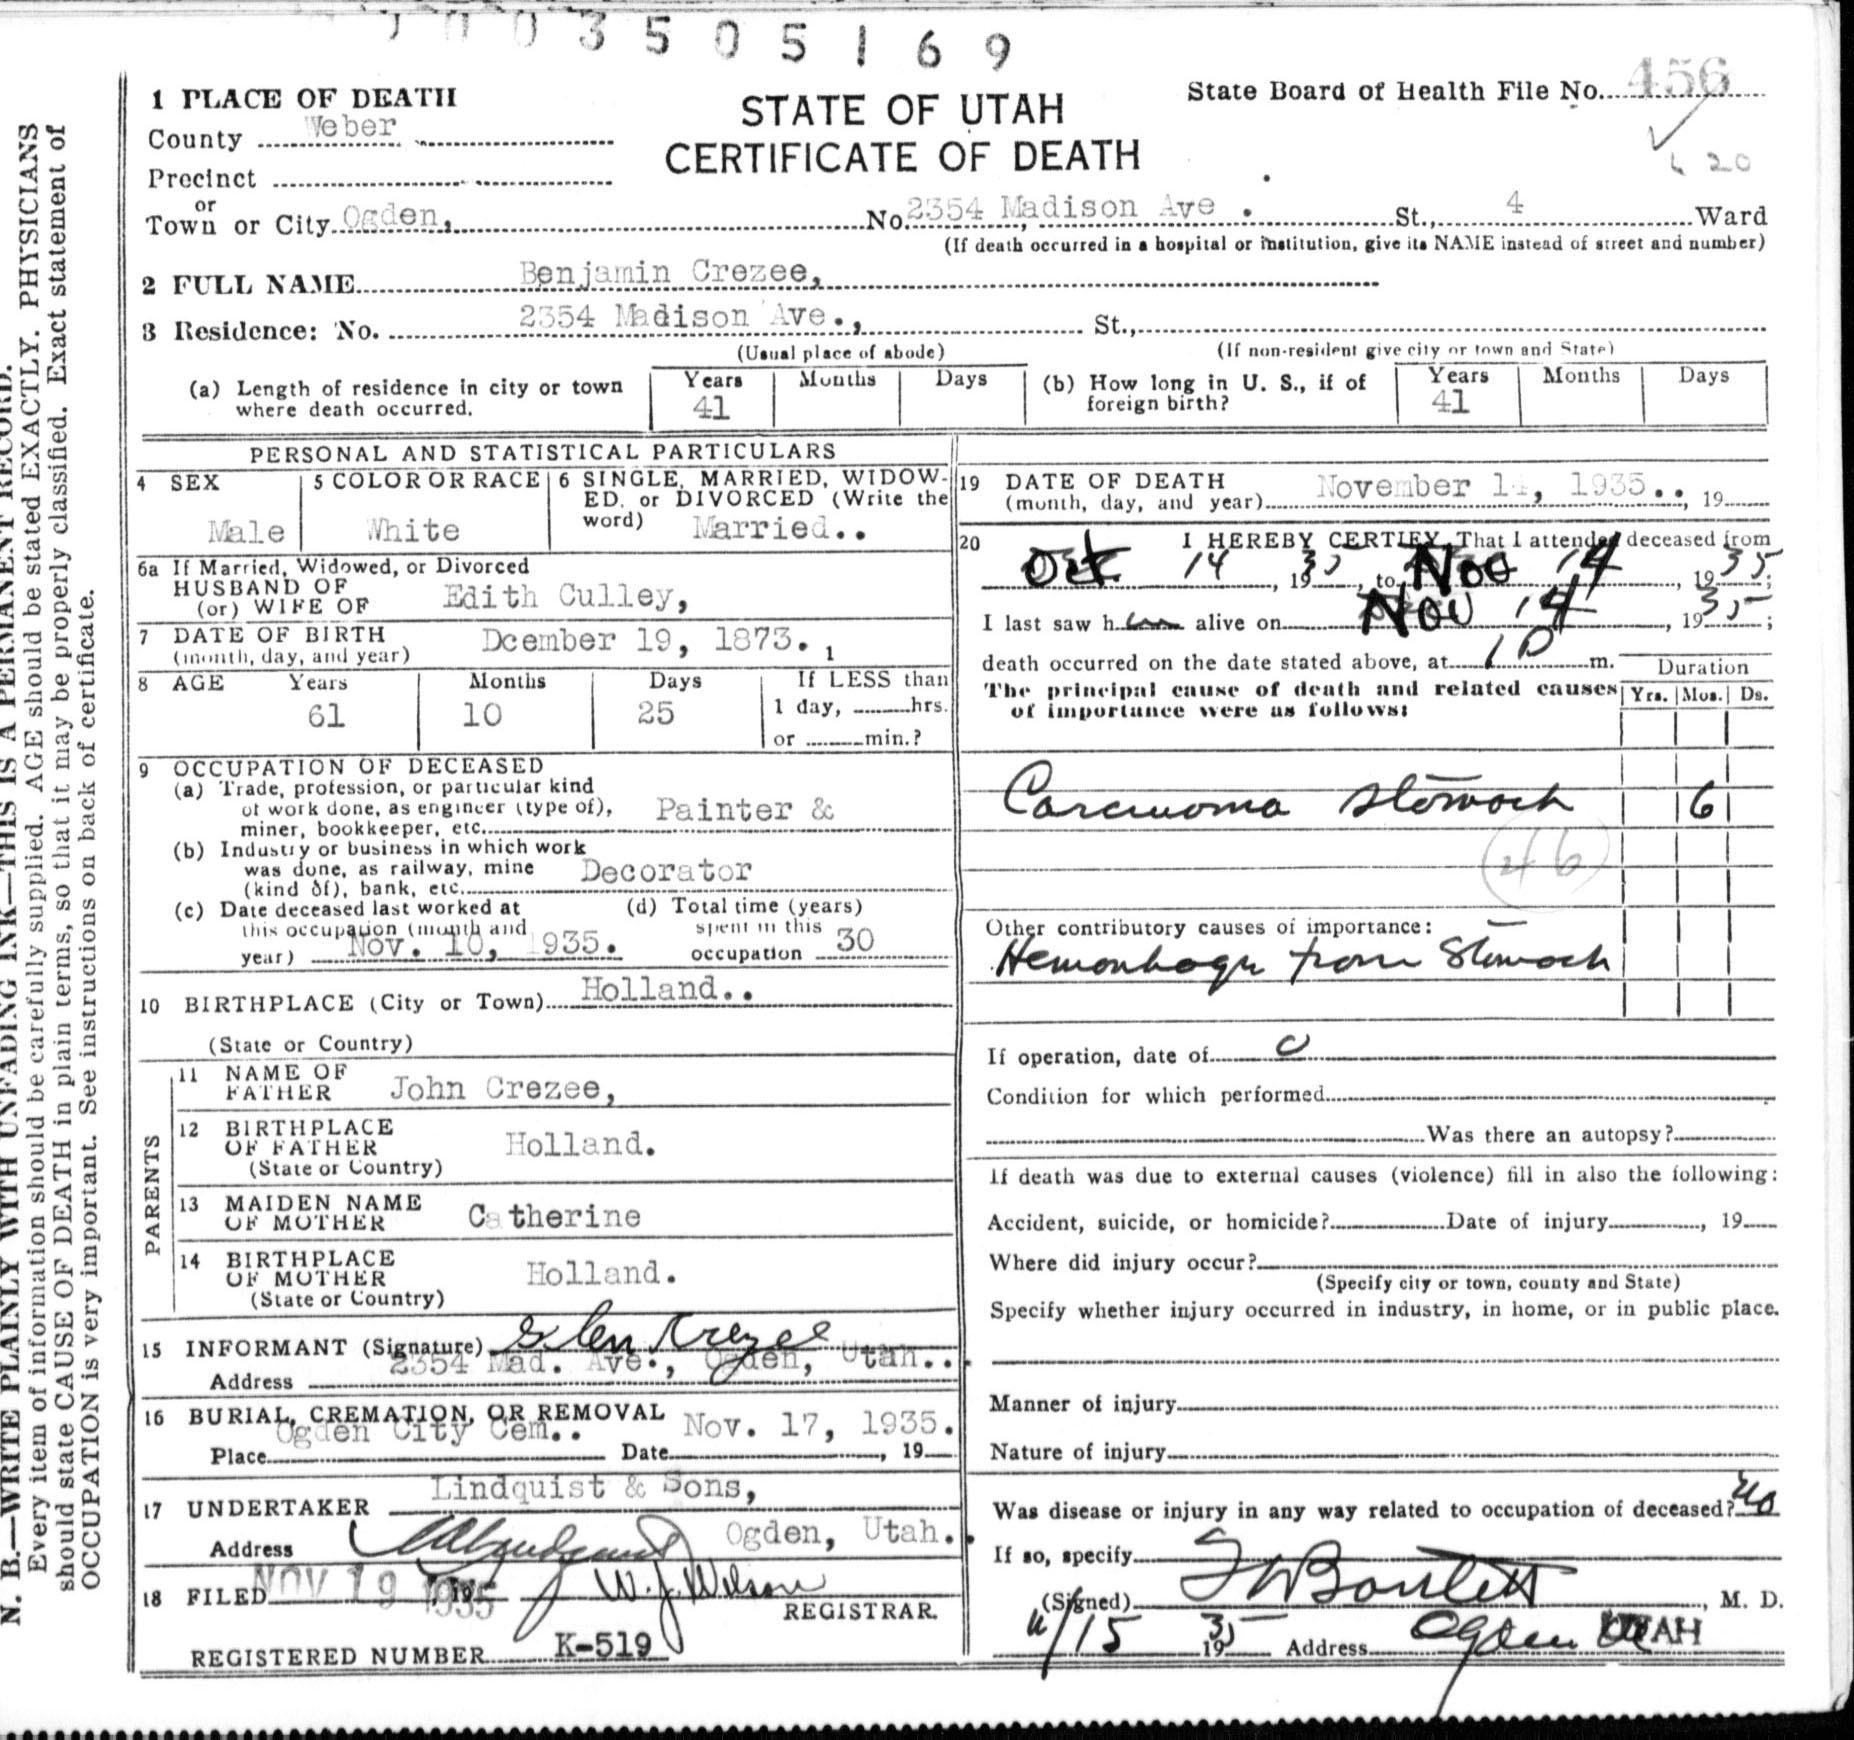 003505169
1 PLACE OF DEATH
STATE OF UTAH
CERTIFICATE OF DEATH
State Board of Health File No. 456
County Weber
20
Precinct
or
Town or City Ogden, No. 2354 Madison Ave . St., 4 Ward
(If death occurred in a hospital or institution, give its NAME instead of street and number)
2 FULL NAME Benjamin Crezee,
3 Residence: No. 2354 Madison Ave., St.,
(Usual place of abode) (If non-resident give city or town and State)
(a) Length of residence in city or town where death occurred. Years 41 Months Days (b) How long in U. S., if of foreign birth? Years 41 Months Days
PERSONAL AND STATISTICAL PARTICULARS
4 SEX Male
5 COLOR OR RACE White
6 SINGLE, MARRIED, WIDOW-
ED, or DIVORCED (Write the
word) Married..
6a If Married, Widowed, or Divorced
HUSBAND OF
(or) WIFE OF Edith Culley,
7 DATE OF BIRTH
(month, day, and year) Dcember 19, 1873. 1
8 AGE Years 61 Months 10 Days 25 If LESS than
1 day, hrs.
or min.?
9 OCCUPATION OF DECEASED
(a) Trade, profession, or particular kind
of work done, as engineer (type of),
miner, bookkeeper, etc. Painter &
(b) Industry or business in which work
was done, as railway, mine
(kind of), bank, etc. Decorator
(c) Date deceased last worked at
this occupation (month and
year) Nov. 10, 1935.
(d) Total time (years)
spent in this
occupation 30
10 BIRTHPLACE (City or Town) Holland..
(State or Country)
PARENTS
11 NAME OF
FATHER John Crezee,
12 BIRTHPLACE
OF FATHER Holland.
(State or Country)
13 MAIDEN NAME
OF MOTHER Catherine
14 BIRTHPLACE
OF MOTHER Holland.
(State or Country)
15 INFORMANT (Signature) Glen Krezee
Address 2354 Mad. Ave., Ogden, Utah..
16 BURIAL, CREMATION, OR REMOVAL
Place Ogden City Cem.. Date Nov. 17, 1935. , 19
17 UNDERTAKER Lindquist & Sons,
Address Ogden, Utah..
18 FILED NOV 19 1935 , 19 W. J. Wilson
REGISTRAR.
REGISTERED NUMBER K-519
19 DATE OF DEATH
(month, day, and year) November 14, 1935.. , 19
20 I HEREBY CERTIFY, That I attended deceased from
Oct 14, 1935, to Nov 14, 1935;
I last saw him alive on Nov 14, 1935;
death occurred on the date stated above, at 10 m.
Duration
The principal cause of death and related causes
of importance were as follows:
Yrs. Mos. Ds.
Carcinoma stomach 6
46
Other contributory causes of importance:
Hemorrhage from Stomach
If operation, date of 0
Condition for which performed
Was there an autopsy?
If death was due to external causes (violence) fill in also the following:
Accident, suicide, or homicide? Date of injury , 19
Where did injury occur?
(Specify city or town, county and State)
Specify whether injury occurred in industry, in home, or in public place.
Manner of injury
Nature of injury
Was disease or injury in any way related to occupation of deceased? no
If so, specify
(Signed) Bartlett , M. D.
11/15 1935 Address Ogden UTAH
N. B.—WRITE PLAINLY WITH UNFADING INK—THIS IS A PERMANENT RECORD.
Every item of information should be carefully supplied. AGE should be stated EXACTLY. PHYSICIANS
should state CAUSE OF DEATH in plain terms, so that it may be properly classified. Exact statement of
OCCUPATION is very important. See instructions on back of certificate.